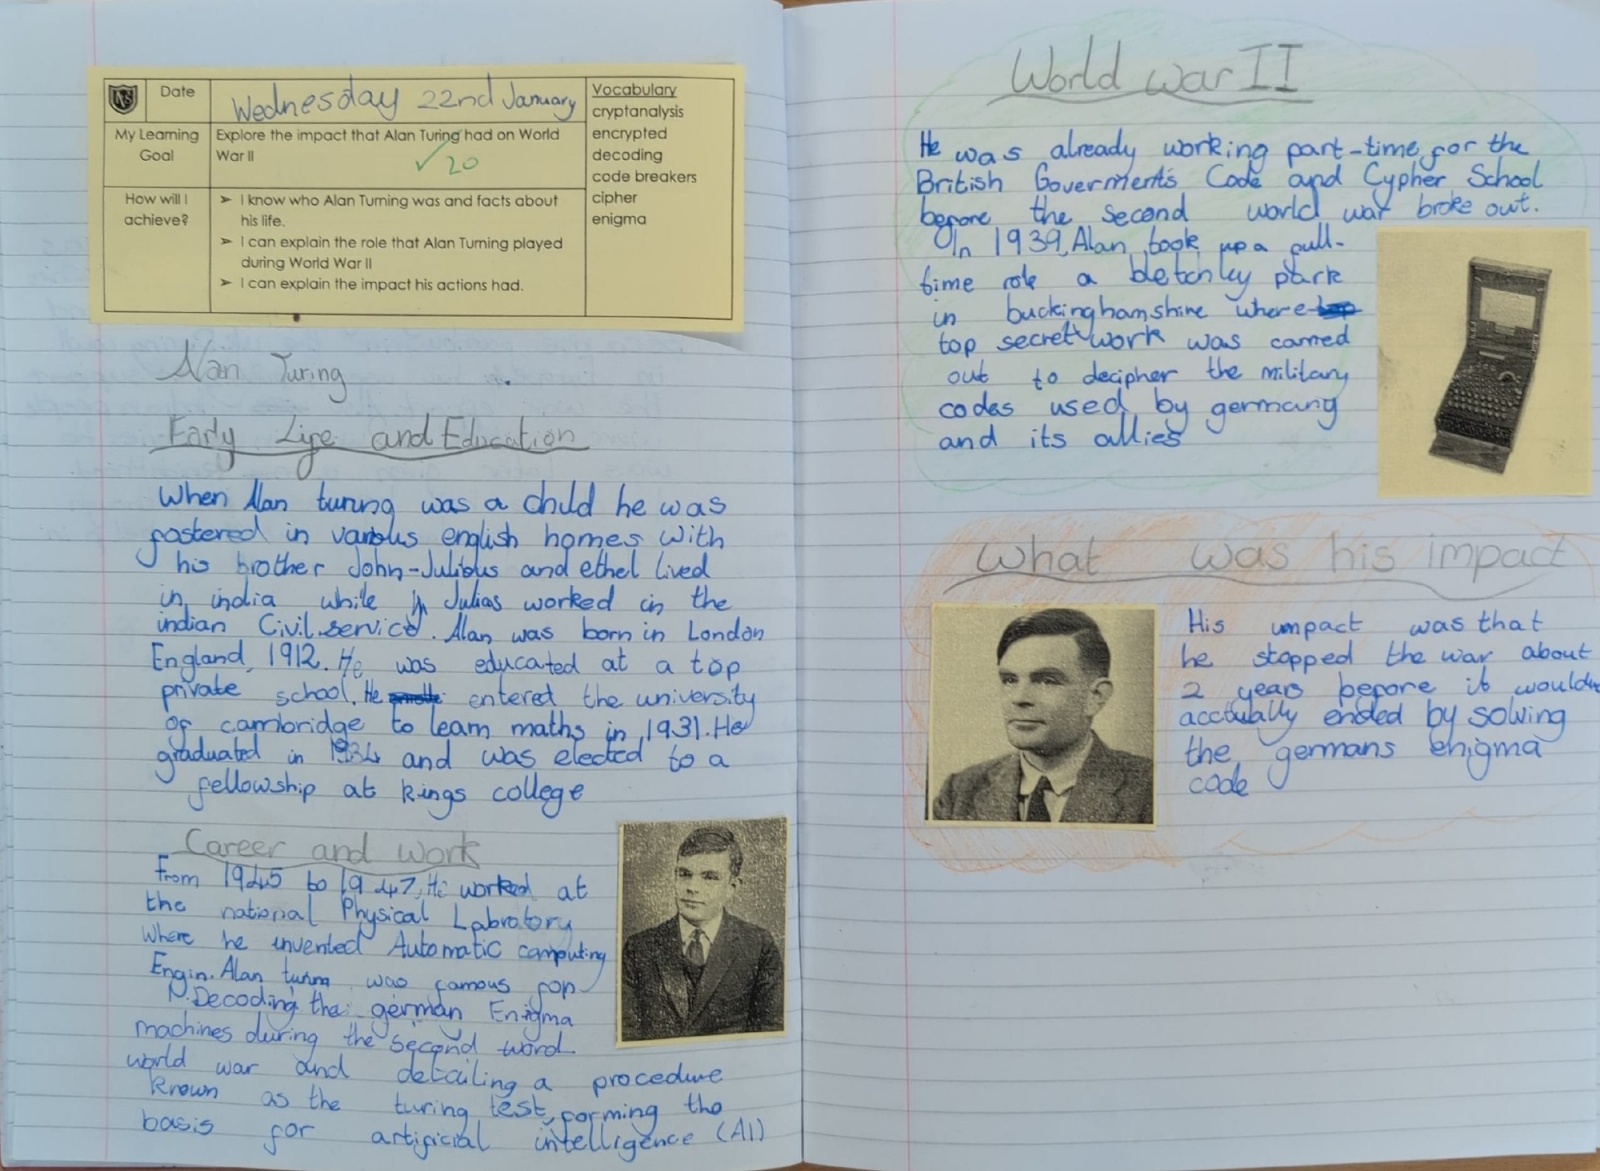 Date
Wednesday 22nd January
My Learning Goal
Explore the impact that Alan Turing had on World
War II
20
How will I
achieve?
➢ I know who Alan Turning was and facts about
his life.
➢ I can explain the role that Alan Turning played
during World War II
➢ I can explain the impact his actions had.
Vocabulary
cryptanalysis
encrypted
decoding
code breakers
cipher
enigma
Alan Turing
Early Life and Education
When Alan turing was a child he was
fostered in various english homes with
his brother John-Julibus and ethel lived
in india while Julias worked in the
indian Civil service. Alan was born in London
England, 1912. He was educated at a top
private school. He entered the university
of cambridge to learn maths in 1931. He
graduated in 1934 and was elected to a
fellowship at kings college
Career and work
From 1945 to 1947, He worked at
the national Physical Labrotory
Where he invented Automatic computing
Engin. Alan turing was famous for
Decoding the german Enigma
machines during the second word
world war and detailing a procedure
known as the turing test, forming the
basis for artificial intelligence (AI)
World war II
He was already working part-time for the
British Goverment's Code and Cypher School
before the Second world war broke out.
In 1939, Alan took up a full-
time role a bletchley park
in buckinghamshire where
top secret work was carried
out to decipher the military
codes used by germany
and its allies
What was his impact
His impact was that
he stopped the war about
2 years before it would
accually ended by solving
the germans enigma
code